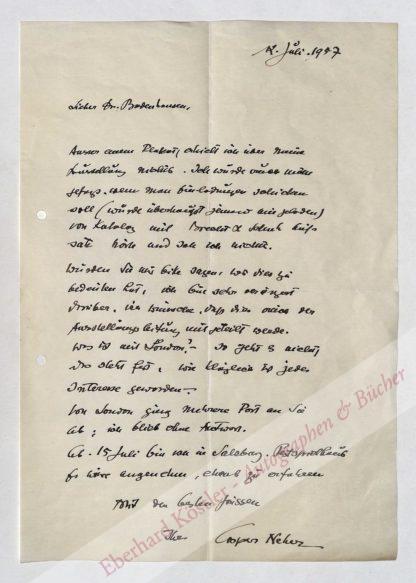 Juli. 1957
Lieber Dr. Bodenhausen,
Ausser einem Plakat, erhielt ich über meine
Ausstellung nichts. Ich wurde weder
gefragt, wem man Einladungen schicken
soll (wurde überhaupt jemand eingeladen)
von Katalog mit Brecht
und sah ich nichts.
Würden Sie mir bitte sagen, was dies zu
bedeuten hat, ich bin sehr verärgert
darüber. Ich wünsche, dass dies der
Ausstellungsleitung mitgeteilt werde.
Was ist mit London? - So geht es nicht,
das steht fest, wie kläglich ist jedes
Interesse geworden. -
Von London ging mehrere Post an Sie
ab; ich blieb ohne Antwort.
Ab 15 Juli bin ich in Salzburg. Festspielhaus
Es wäre angenehm, etwas zu erfahren
Mit den besten Grüssen
Ihr Caspar Neher
Eberhard Köstler - Autographen & Bücher